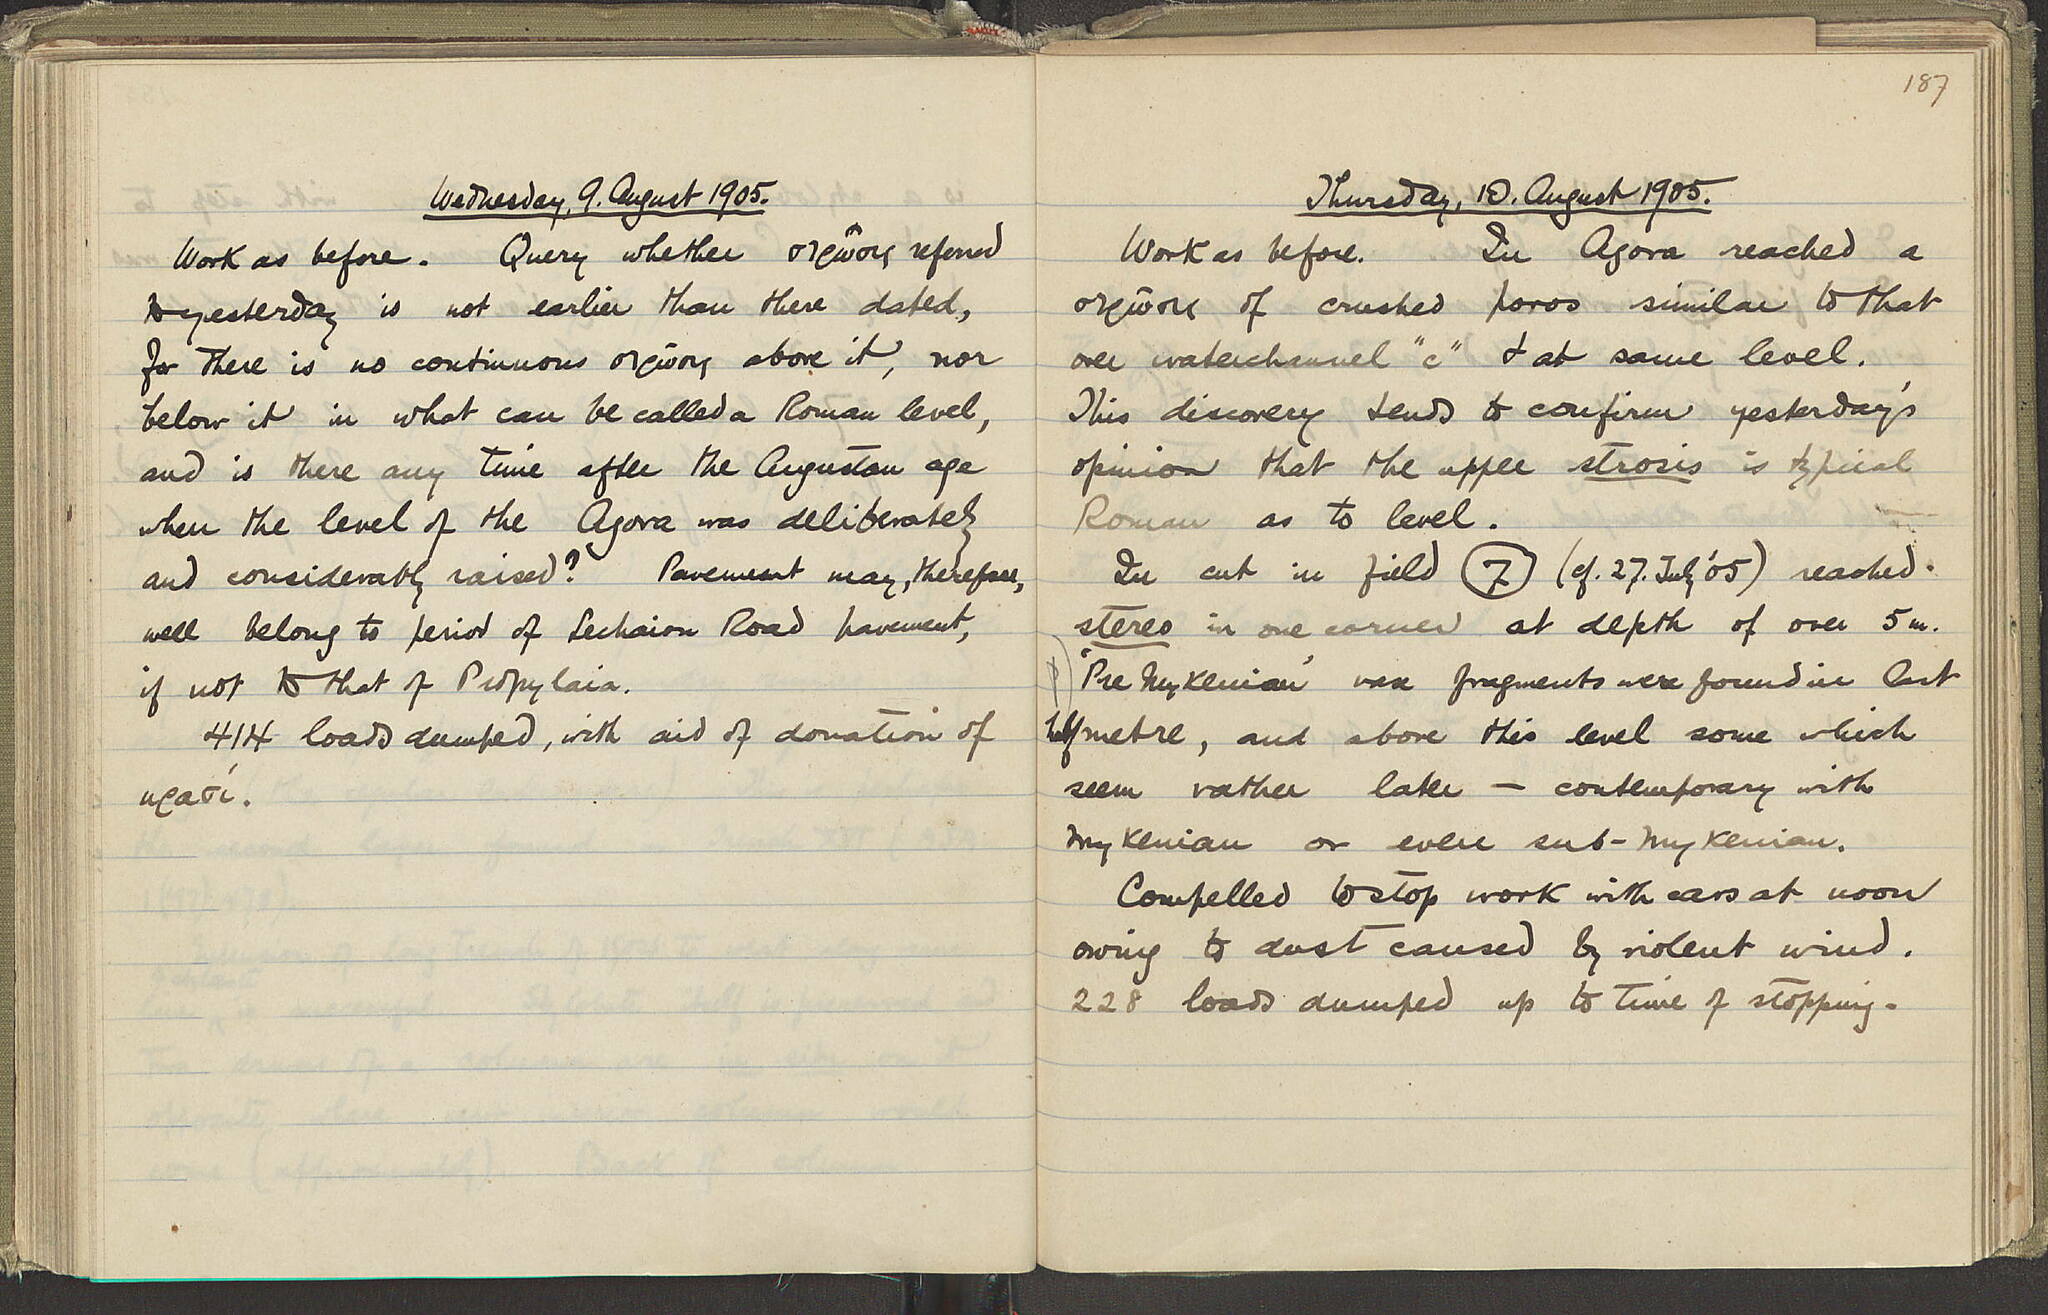 Wednesday, 9. August 1905.
Work as before. Query whether στρῶσις referred
to yesterday is not earlier than there dated,
for there is no continuous στρῶσις above it, nor
below it in what can be called a Roman level,
and is there any time after the Augustan age
when the level of the Agora was deliberately
and considerably raised? Pavement may, therefore,
well belong to period of Lechaion Road pavement,
if not to that of Propylaia.
414 loads dumped, with aid of donation of
κρασί.
187
Thursday, 10. August 1905.
Work as before. In Agora reached a
στρῶσις of crushed poros similar to that
over waterchannel "c" & at same level.
This discovery tends to confirm yesterday's
opinion that the upper strosis is typical
Roman as to level.
In cut in field 7 (cf. 27. July '05) reached
stereo in one corner at depth of over 5 m.
'Pre Mykenian' vase fragments were found in last
half metre, and above this level some which
seem rather later — contemporary with
Mykenian or even sub-Mykenian.
Compelled to stop work with cars at noon
owing to dust caused by violent wind.
228 loads dumped up to time of stopping.